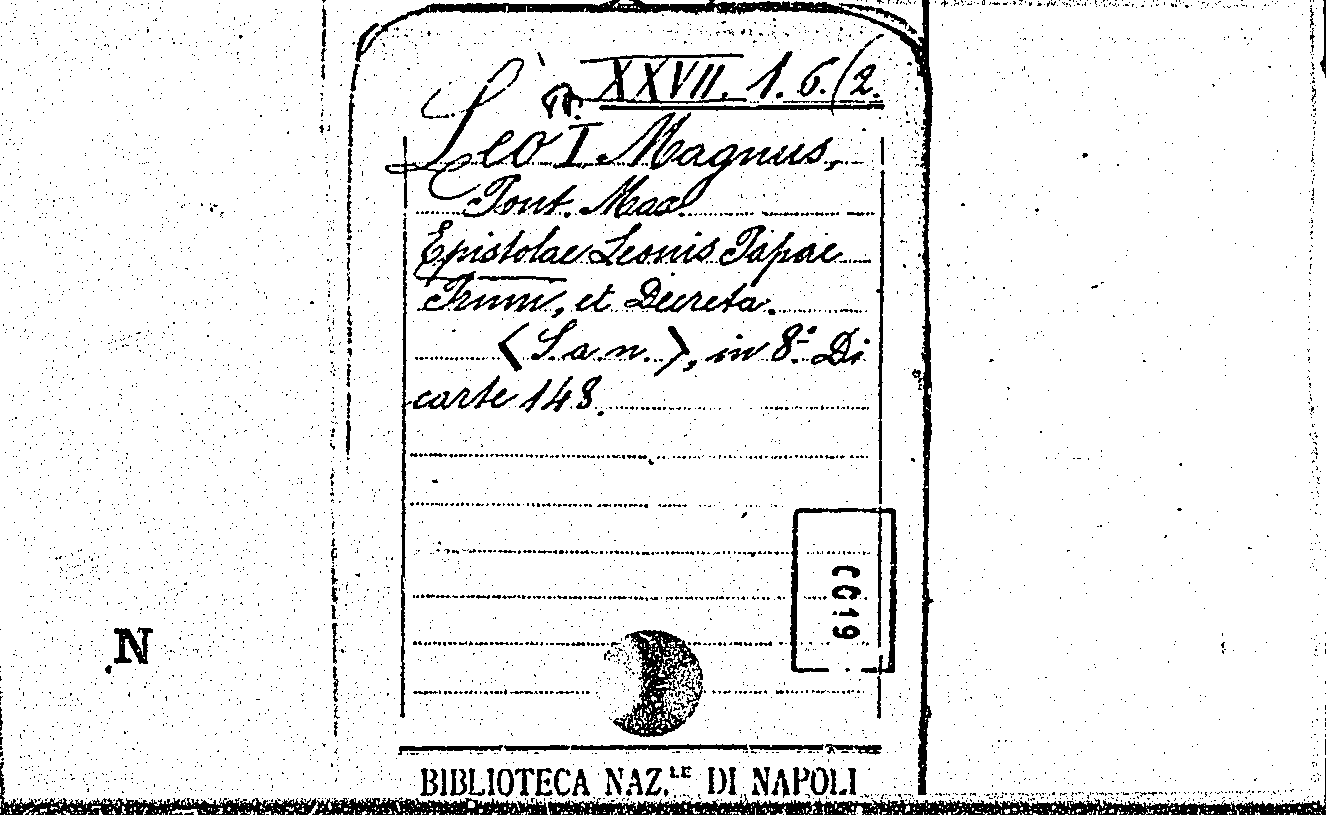 XXVII. 1. 6. (2.
Leo I Magnus,
Pont. Max.
Epistolae Leonis Papae
Primi, et Decreta.
(S. a. n.), in 8.° Di
carte 148.
0019
N
BIBLIOTECA NAZ.LE DI NAPOLI